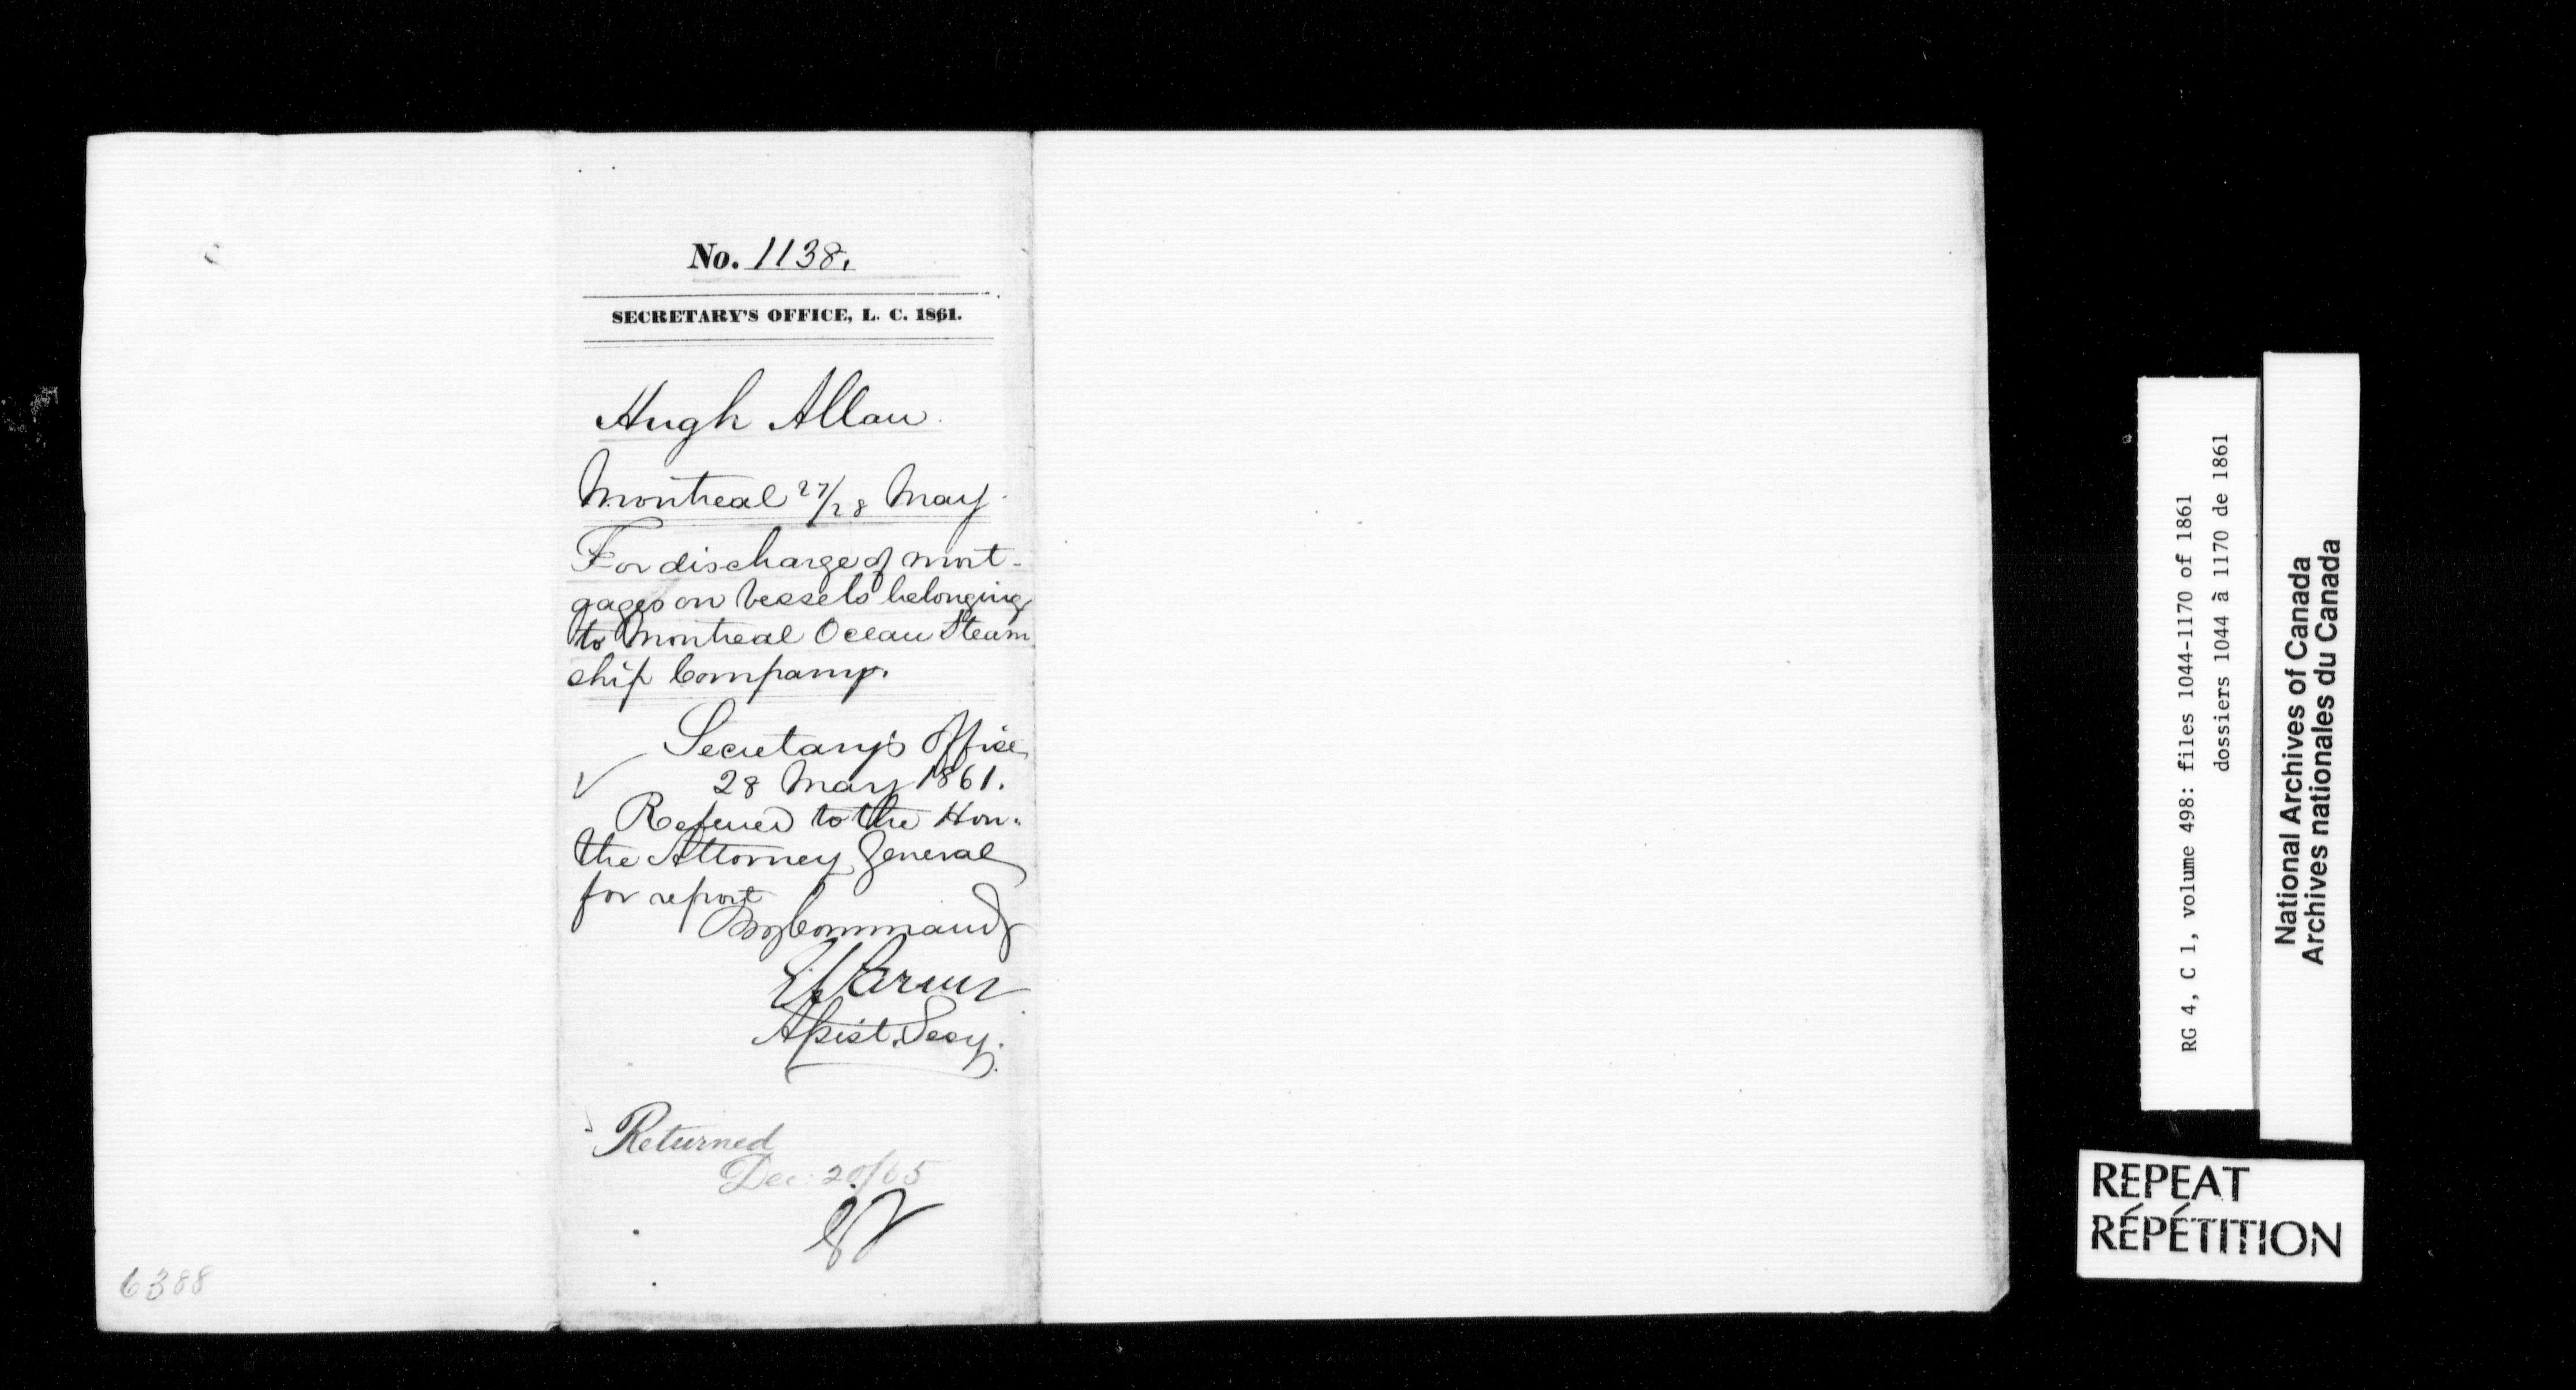 No. 1138.
SECRETARY'S OFFICE, L. C. 1861.
Hugh Allan
Montreal 27/28 May
For discharge of mort-
gages on Vessels belonging
to Montreal Ocean Steam
ship Company.
Secretary's Office
28 May 1861.
Referred to the Hon.
the Attorney General
for report
By Command
Asst. Secy.
Returned
Dec. 20/65
6388
RG 4, C 1, volume 498: files 1044-1170 of 1861
dossiers 1044 à 1170 de 1861
National Archives of Canada
Archives nationales du Canada
REPEAT
RÉPÉTITION